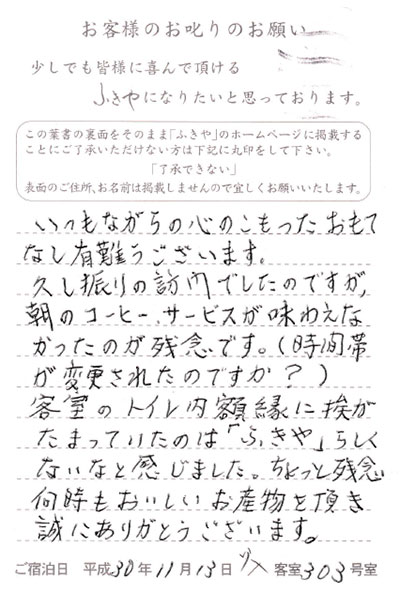 お客様のお叱りのお願い
少しでも皆様に喜んで頂ける
ふきやになりたいと思っております。
この葉書の裏面をそのまま「ふきや」のホームページに掲載する
ことにご了承いただけない方は下記に丸印をして下さい。
「了承できない」
表面のご住所、お名前は掲載しませんので宜しくお願いいたします。
いつもながらの心のこもったおもて
なし有難うございます。
久し振りの訪問でしたのですが、
朝のコーヒーサービスが味わえな
かったのが残念です。(時間帯
が変更されたのですか?)
客室のトイレ内額縁に挨が
たまっていたのは「ふきや」らしく
ないなと感じました。ちょっと残念
何時もおいしいお産物を頂き
誠にありがとうございます。
ご宿泊日 平成30年11月13日 客室303号室